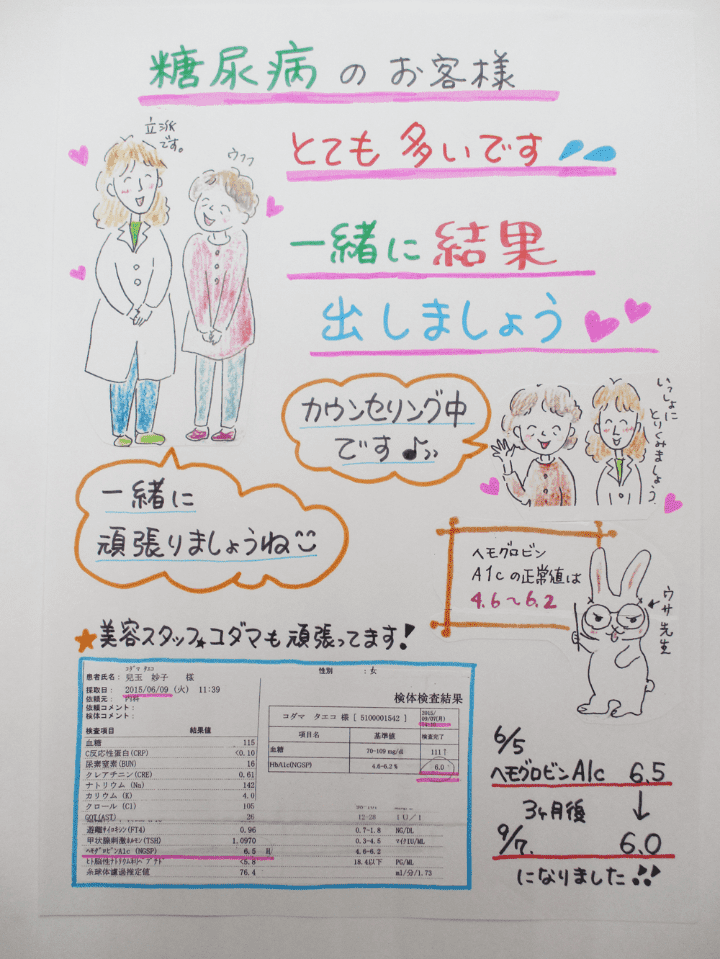 糖尿病のお客様
とても多いです
立派
です。
ウフフ
一緒に結果
出しましょう
カウンセリング中
です♪
いっしょに
とりくみましょう。
一緒に
頑張りましょうね
ヘモグロビン
A1cの正常値は
4.6〜6.2
ウサ先生
★美容スタッフ★コダマも頑張ってます!
コダマ タエコ
患者氏名: 児玉 妙子 様
性別 : 女
採取日: 2015/06/09 (火) 11:39
依頼元: 内科
依頼コメント:
検体コメント:
検査項目 結果値
血糖 115
C反応性蛋白(CRP) <0.10
尿素窒素(BUN) 16
クレアチニン(CRE) 0.61
ナトリウム (Na) 142
カリウム (K) 4.0
クロール (Cl) 105
GOT(AST) 26 12-28 IU/l
遊離サイロキシン(FT4) 0.96 0.7-1.8 NG/DL
甲状腺刺激ホルモン(TSH) 1.0970 0.3-4.5 マイクロIU/ML
ヘモグロビンA1c (NGSP) 6.5 H/ 4.6-6.2
ヒト脳性ナトリウム利ペプチド <5.8 18.4以下 PG/ML
糸球体濾過推定値 76.4 ml/分/1.73
検体検査結果
コダマ タエコ 様 [ 5100001542 ] 2015/
09/07(月)
項目名 基準値 検査完了
血糖 70-109 mg/dl 111↑
HbA1c(NGSP) 4.6-6.2 % 6.0
6/5
ヘモグロビンA1c 6.5
3ヶ月後 ↓
9/7. 6.0
になりました